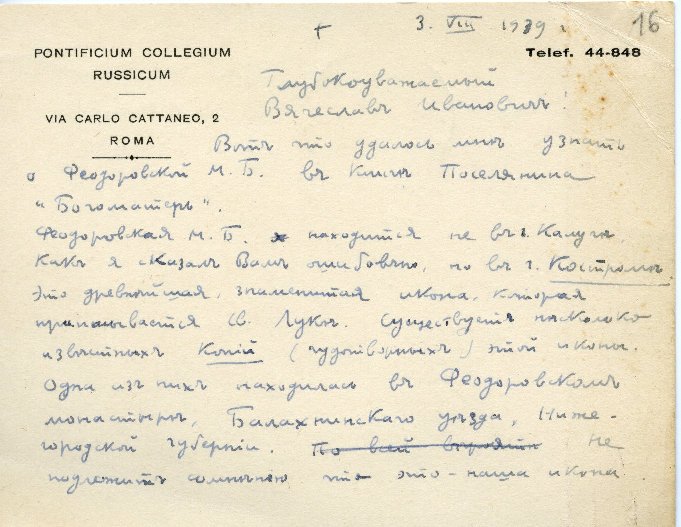 16
+ 3. VIII 1939 г.
PONTIFICIUM COLLEGIUM
RUSSICUM
Telef. 44-848
VIA CARLO CATTANEO, 2
ROMA
Глубокоуважаемый
Вячеславъ Ивановичъ!
Вотъ что удалось мнѣ узнать
о Феодоровской М. Б. въ книгѣ Поселянина
"Богоматерь".
Феодоровская М. Б. находится не въ г. Калугѣ,
какъ я сказалъ Вамъ ошибочно, но въ г. Костромѣ
Это древнѣйшая, знаменитая икона, которая
приписывается Св. Лукѣ. Существуетъ нѣсколько
извѣстныхъ копій (чудотворныхъ) этой иконы.
Одна изъ нихъ находилась въ Феодоровскомъ
монастырѣ, Балахнинскаго уѣзда, Ниже-
городской губерніи. По всей вѣроятн не
подлежитъ сомнѣнію что это - наша икона